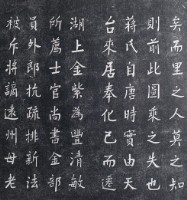 矣而里之人莫之知
則前此圖乘之失也
蔣氏自唐時實由天
台來居奉化已而遷
湖上金紫為豐清敏
所薦士官尚書金部
員外郎抗疏排新法
被斥將謫遠州母老